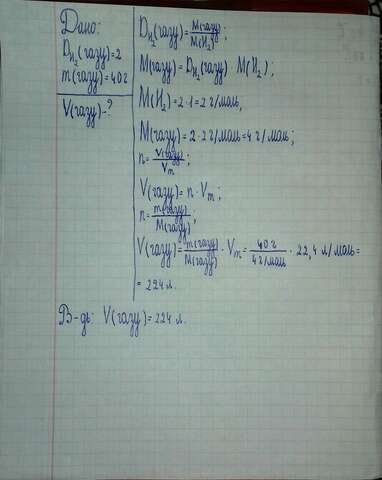 Дано:
D_H₂(газу)=2
m(газу)=40г
V(газу)-?
D_H₂(газу)=M(газу)/M(H₂);
M(газу)=D_H₂(газу)·M(H₂);
M(H₂)=2·1=2 г/моль,
M(газу)=2·2г/моль=4г/моль;
n=V(газу)/Vm;
V(газу)=n·Vm;
n=m(газу)/M(газу);
V(газу)=m(газу)/M(газу)·Vm=40г/4г/моль·22,4 л/моль=
=224л.
В-дь: V(газу)=224 л.